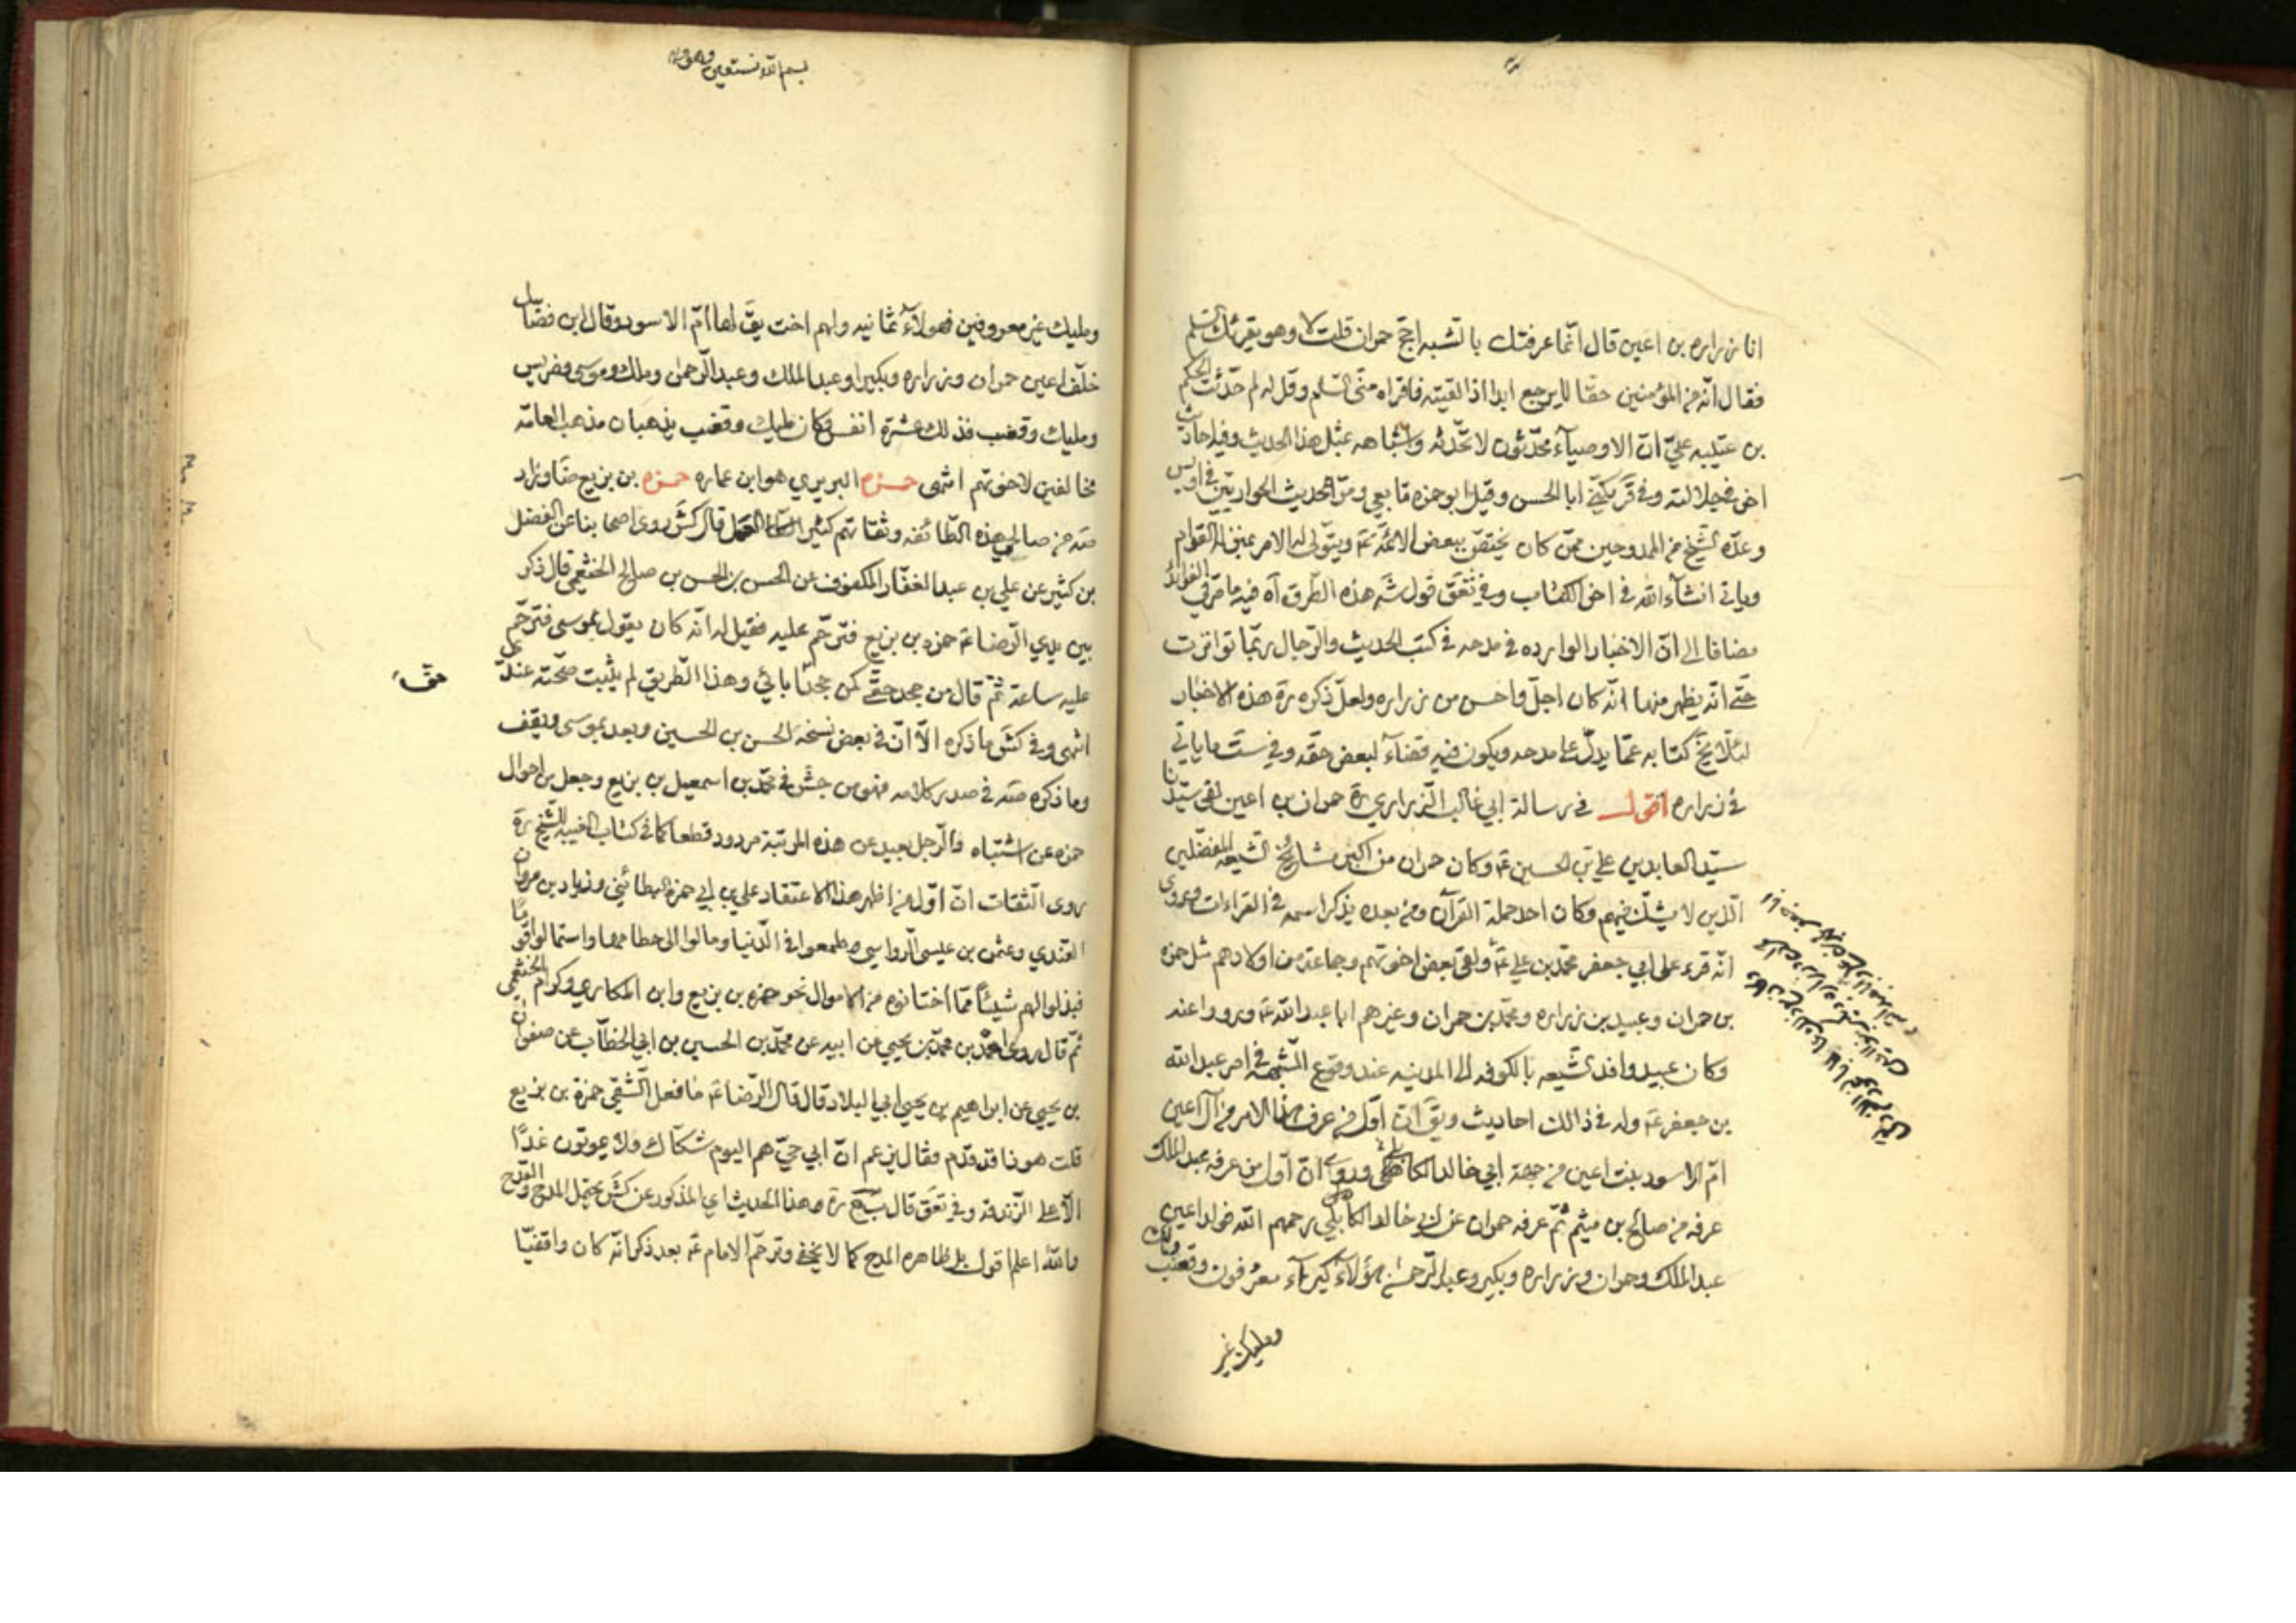 انا زراره بن اعين قال انّما عرفتك بالشبه احجّ حمران قلت لا وهو يقرئك السّلام
فقال انّه من المؤمنين حقّا لا يرجع ابدا اذا لقيته فاقراه منّي السّلم وقل له لم حدّثت الحكم
بن عتيبه عنّي انّ الاوصيآء محدّثون لا تحدّثه واشباهه بمثل هذا الحديث وفيه احاديث
اخر في جلالته وفي قر يكنّى ابا الحسن وقيل ابو حمزه تابعي ومرّ الحديث الحواريّين في اويس
وعدّه الشيخ من الممدوحين ممّن كان يختصّ ببعض الائمّة ع ويتولّى له الامر بمنزلة القوّام
وياتي انشآء الله في اخر الكتاب وفي تعق قول شه هذه الطّرق آه فيه ما مرّ في الفوائد
مضافا الى انّ الاخبار الوارده في مدحه في كتب الحديث والرّجال ربّما تواترت
حتّى انّه يظهر منها انّه كان اجلّ واحسن من زراره ولعلّ ذكره ره هذه الاخبار
لئلّا يخ كتابه عمّا يدلّ على مدحه ويكون فيه قضآء لبعض حقّه وفي ست ما ياتي
في زراره اقول في رسالة ابي غالب الزّراري ره حمران بن اعين لقى سيّدنا
سيّد العابدين علي بن الحسين ع وكان حمران من اكبر مشايخ الشّيعه المفضّلين
الّذين لا يشكّ فيهم وكان احد حملة القرآن ومن بعده يذكر اسمه في القراءات وروى
انّه قرء على ابي جعفر محمّد بن علي ع ولقى بعض اخوتهم وجماعة من اولادهم مثل حمزه
بن حمران وعبيد بن زراره ومحمّد بن حمران وغيرهم ابا عبد الله ع ورووا عنه
وكان عبيد وافد الشّيعه بالكوفه الى المدينه عند وقوع الشّبهة في امر عبد الله
بن جعفر ع وله في ذالك احاديث ويقَ انّ اوّل من عرف هذا الامر من آل اعين
امّ الاسود بنت اعين من جهة ابي خالد الكابلي وروى انّ اوّل من عرفه عبد الملك
عرفه من صالح بن ميثم ثمّ عرفه حمران عن ابي خالد الكابلي رحمهم الله فولد اعين
عبد الملك وحمران وزراره وبكير وعبد الرّحمن هؤلآء كبرآء معرفون وقعنب ومالك
ومليك غير
بسم الله نستعين
ومليك غير معروفين فهولآء ثمانيه ولهم اخت يقَ لها امّ الاسود وقال ابن فضال
خلّف اعين حمران وزراره وبكيرا وعبد الملك وعبد الرّحمن وملك وموسى وضريس
ومليك وقعنب فذلك عشرة انفس وكان مليك وقعنب يذهبان مذهب العامّه
مخالفين لاخوتهم انتهى حمزه البربري هو ابن عماره حمزه بن بزيع ضا وزاد
صه من صالحي هذه الطّائفه وثقاتهم كثير العمل قال كش روى اصحابنا عن الفضل
بن كثير عن علي بن عبد الغفّار المكفوف عن الحسن بن الحسن بن صالح الخثعمي قال ذكر
بين يدي الرّضا ع حمزه بن بزيع فترحّم عليه فقيل له انّه كان يقول بموسى فترحّم
عليه ساعة ثمّ قال من جحد حقّي كمن جحد آبائي وهذا الطّريق لم يثبت صحّته عندي
انتهى وفي كش ما ذكره الّا انّ في بعض نسخه الحسن بن الحسين وبعد بموسى ويقف
وما ذكره صه في صدر كلامه فهو من جش في محمّد بن اسمعيل بن بزيع وجعل من احوال
حمزه عن اشتباه والرّجل بعيد عن هذه المرتبة مردود قطعا كما في كتاب الغيبه للشّيخ ره
روى الثّقات انّ اوّل من اظهر هذا الاعتقاد علي بن ابي حمزة البطائني وزياد بن مروان
القندي وعثمن بن عيسى الرّواسي طمعوا في الدّنيا ومالوا الى حطامها واستمالوا قوما
فبذلوا لهم شيئا ممّا اختانوه من الاموال نحو حمزه بن بزيع وابن المكاري وكرّام الخثعمي
ثمّ قال روى احمد بن محمّد بن يحيى عن ابيه عن محمّد بن الحسين بن ابي الخطّاب عن صفوان
بن يحيى عن ابراهيم بن يحيى ابي البلاد قال قال الرّضا ع ما فعل الشّقي حمزة بن بزيع
قلت هوذا قد قدم فقال يزعم انّ ابي حيّ هم اليوم شكّاك ولا يموتون غدًا
الّا على الزّندقه وفي تعق قال ره وهذا الحديث اي المذكور عن كش يحتمل المدح والقدح
والله اعلم اقول بل ظاهره المدح كما لا يخفى وترحّم الامام ع بعد ذكر انّه كان واقفيّا